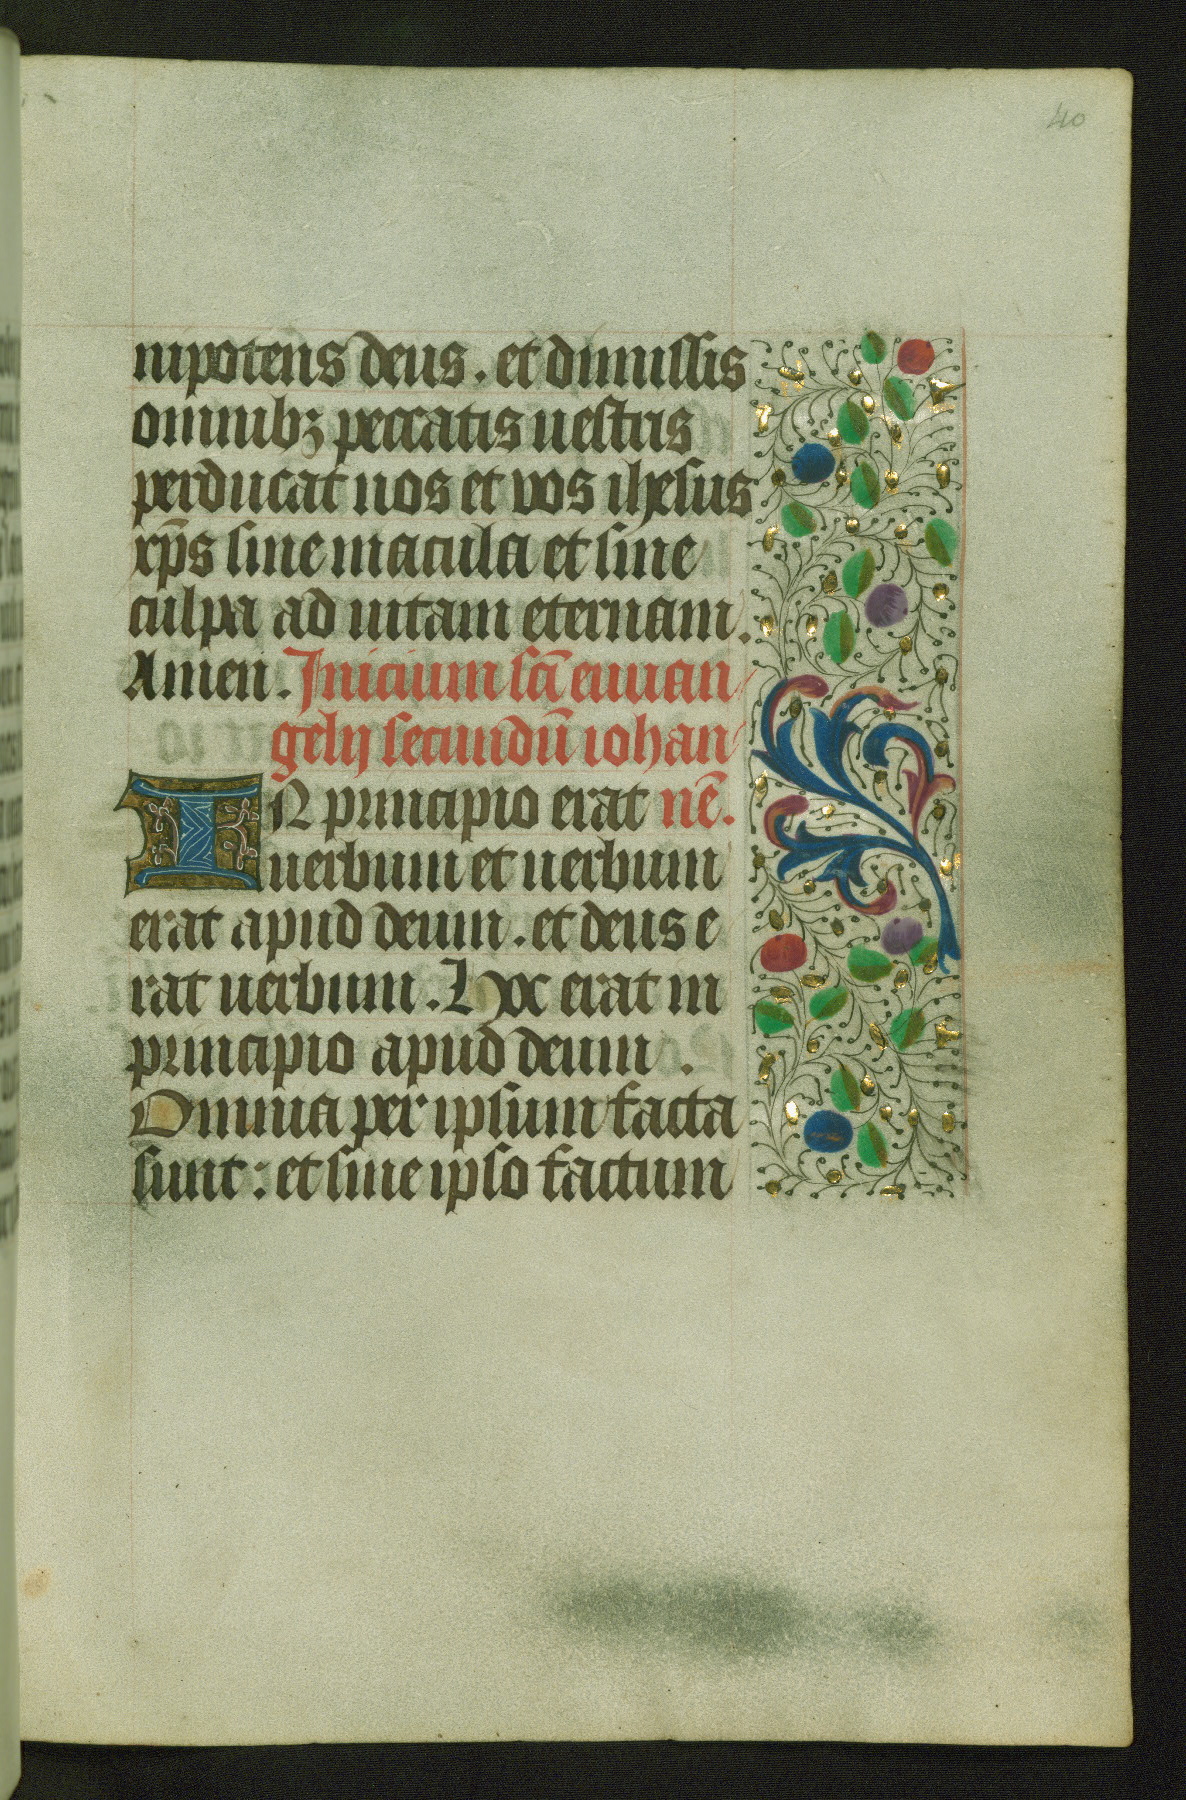 40
nipotens deus. et dimissis
omnibꝫ peccatis uestris
perducat nos et vos ihesus
xp̄s sine macula et sine
culpa ad uitam eternam.
Amen. Inicium sc̄i euuan
gelij secundū iohan
IN principio erat nē.
uerbum et uerbum
erat apud deum. et deus e
rat uerbum. Hoc erat in
principio apud deum.
Omnia per ipsum facta
sunt: et sine ipso factum